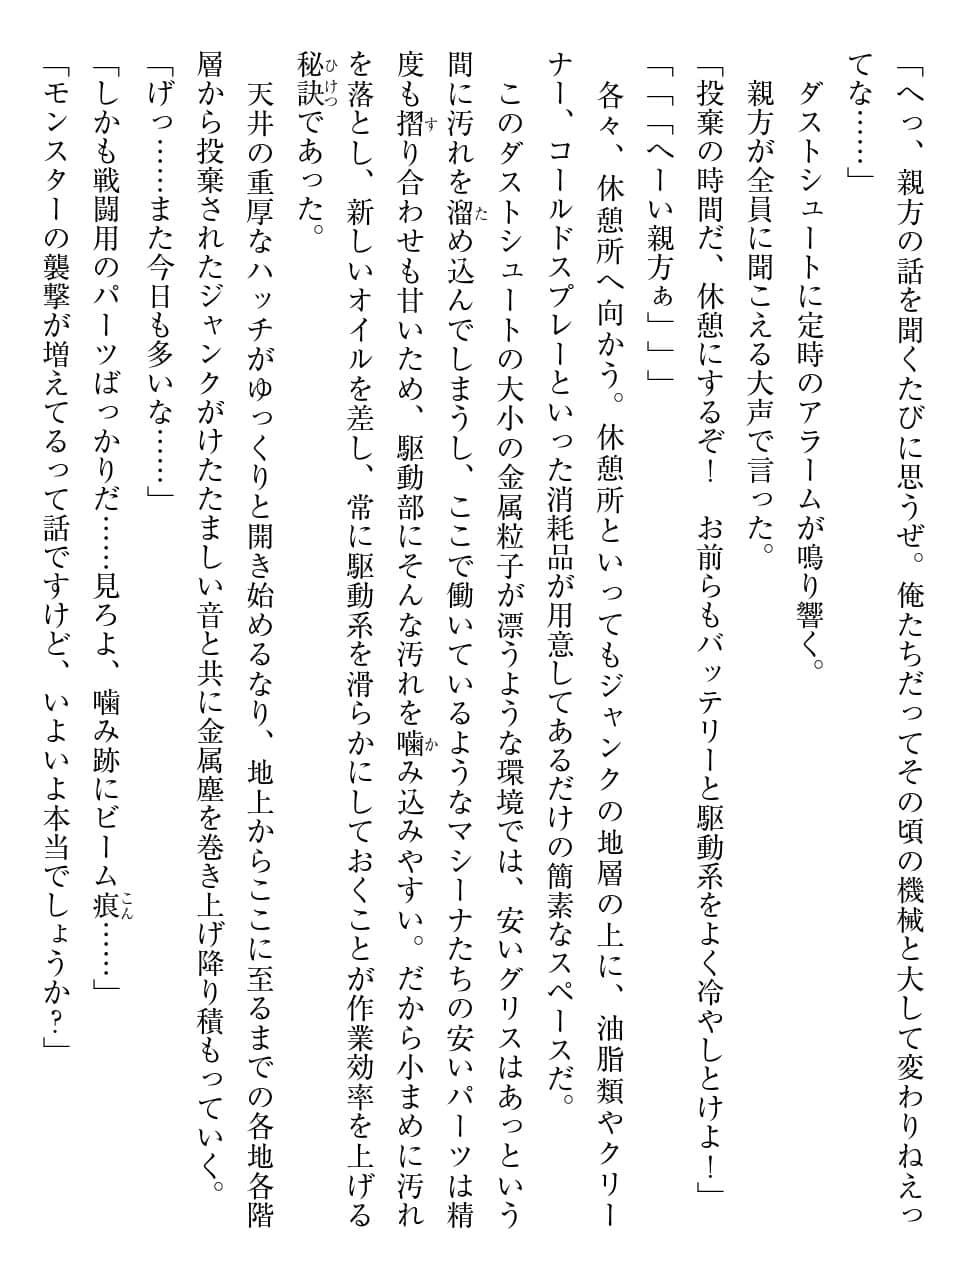 「へっ、親方の話を聞くたびに思うぜ。俺たちだってその頃の機械と大して変わりねえっ
てな……」
　ダストシュートに定時のアラームが鳴り響く。
　親方が全員に聞こえる大声で言った。
「投棄の時間だ、休憩にするぞ！　お前らもバッテリーと駆動系をよく冷やしとけよ！」
「「「へーい親方ぁ」」」
　各々、休憩所へ向かう。休憩所といってもジャンクの地層の上に、油脂類やクリー
ナー、コールドスプレーといった消耗品が用意してあるだけの簡素なスペースだ。
　このダストシュートの大小の金属粒子が漂うような環境では、安いグリスはあっという
間に汚れを溜め込んでしまうし、ここで働いているようなマシーナたちの安いパーツは精
度も摺り合わせも甘いため、駆動部にそんな汚れを噛み込みやすい。だから小まめに汚れ
を落とし、新しいオイルを差し、常に駆動系を滑らかにしておくことが作業効率を上げる
秘訣であった。
　天井の重厚なハッチがゆっくりと開き始めるなり、地上からここに至るまでの各地各階
層から投棄されたジャンクがけたたましい音と共に金属塵を巻き上げ降り積もっていく。
「げっ……また今日も多いな……」
「しかも戦闘用のパーツばっかりだ……見ろよ、噛み跡にビーム痕……」
「モンスターの襲撃が増えてるって話ですけど、いよいよ本当でしょうか？」